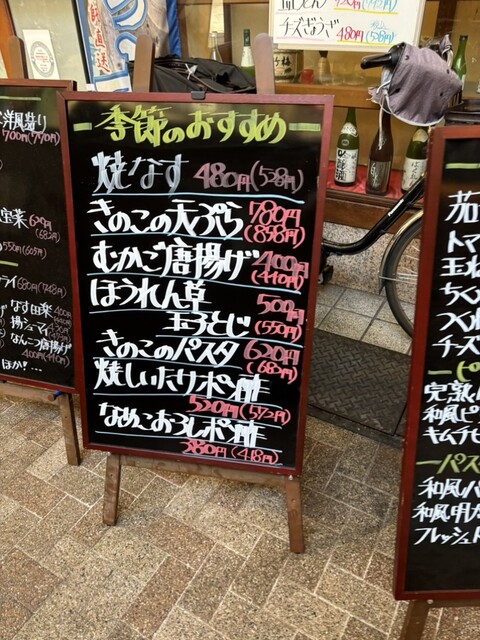 季節のおすすめ
焼なす 480円(528円)
きのこの天ぷら 780円
(858円)
むかご唐揚げ 400円
(440円)
ほうれん草
玉子とじ 500円
(550円)
きのこのパスタ 620円
(682円)
焼しいたけポン酢
520円(572円)
なめこおろしポン酢
380円(418円)
洋風造り
700円(770円)
620円
(682円)
550円(605円)
680円(748円)
なす田楽 400円
揚シュウマイ
なんこつ唐揚げ
400円(440円)
ほか!…
チーズぎょうざ 480円(528円)
直送
茄
トマ
玉ね
ちく
つくね
チーズ
ーピ
完熟
和風ピ
キムチ
ーパス
和風
和風明太
フレッシュト